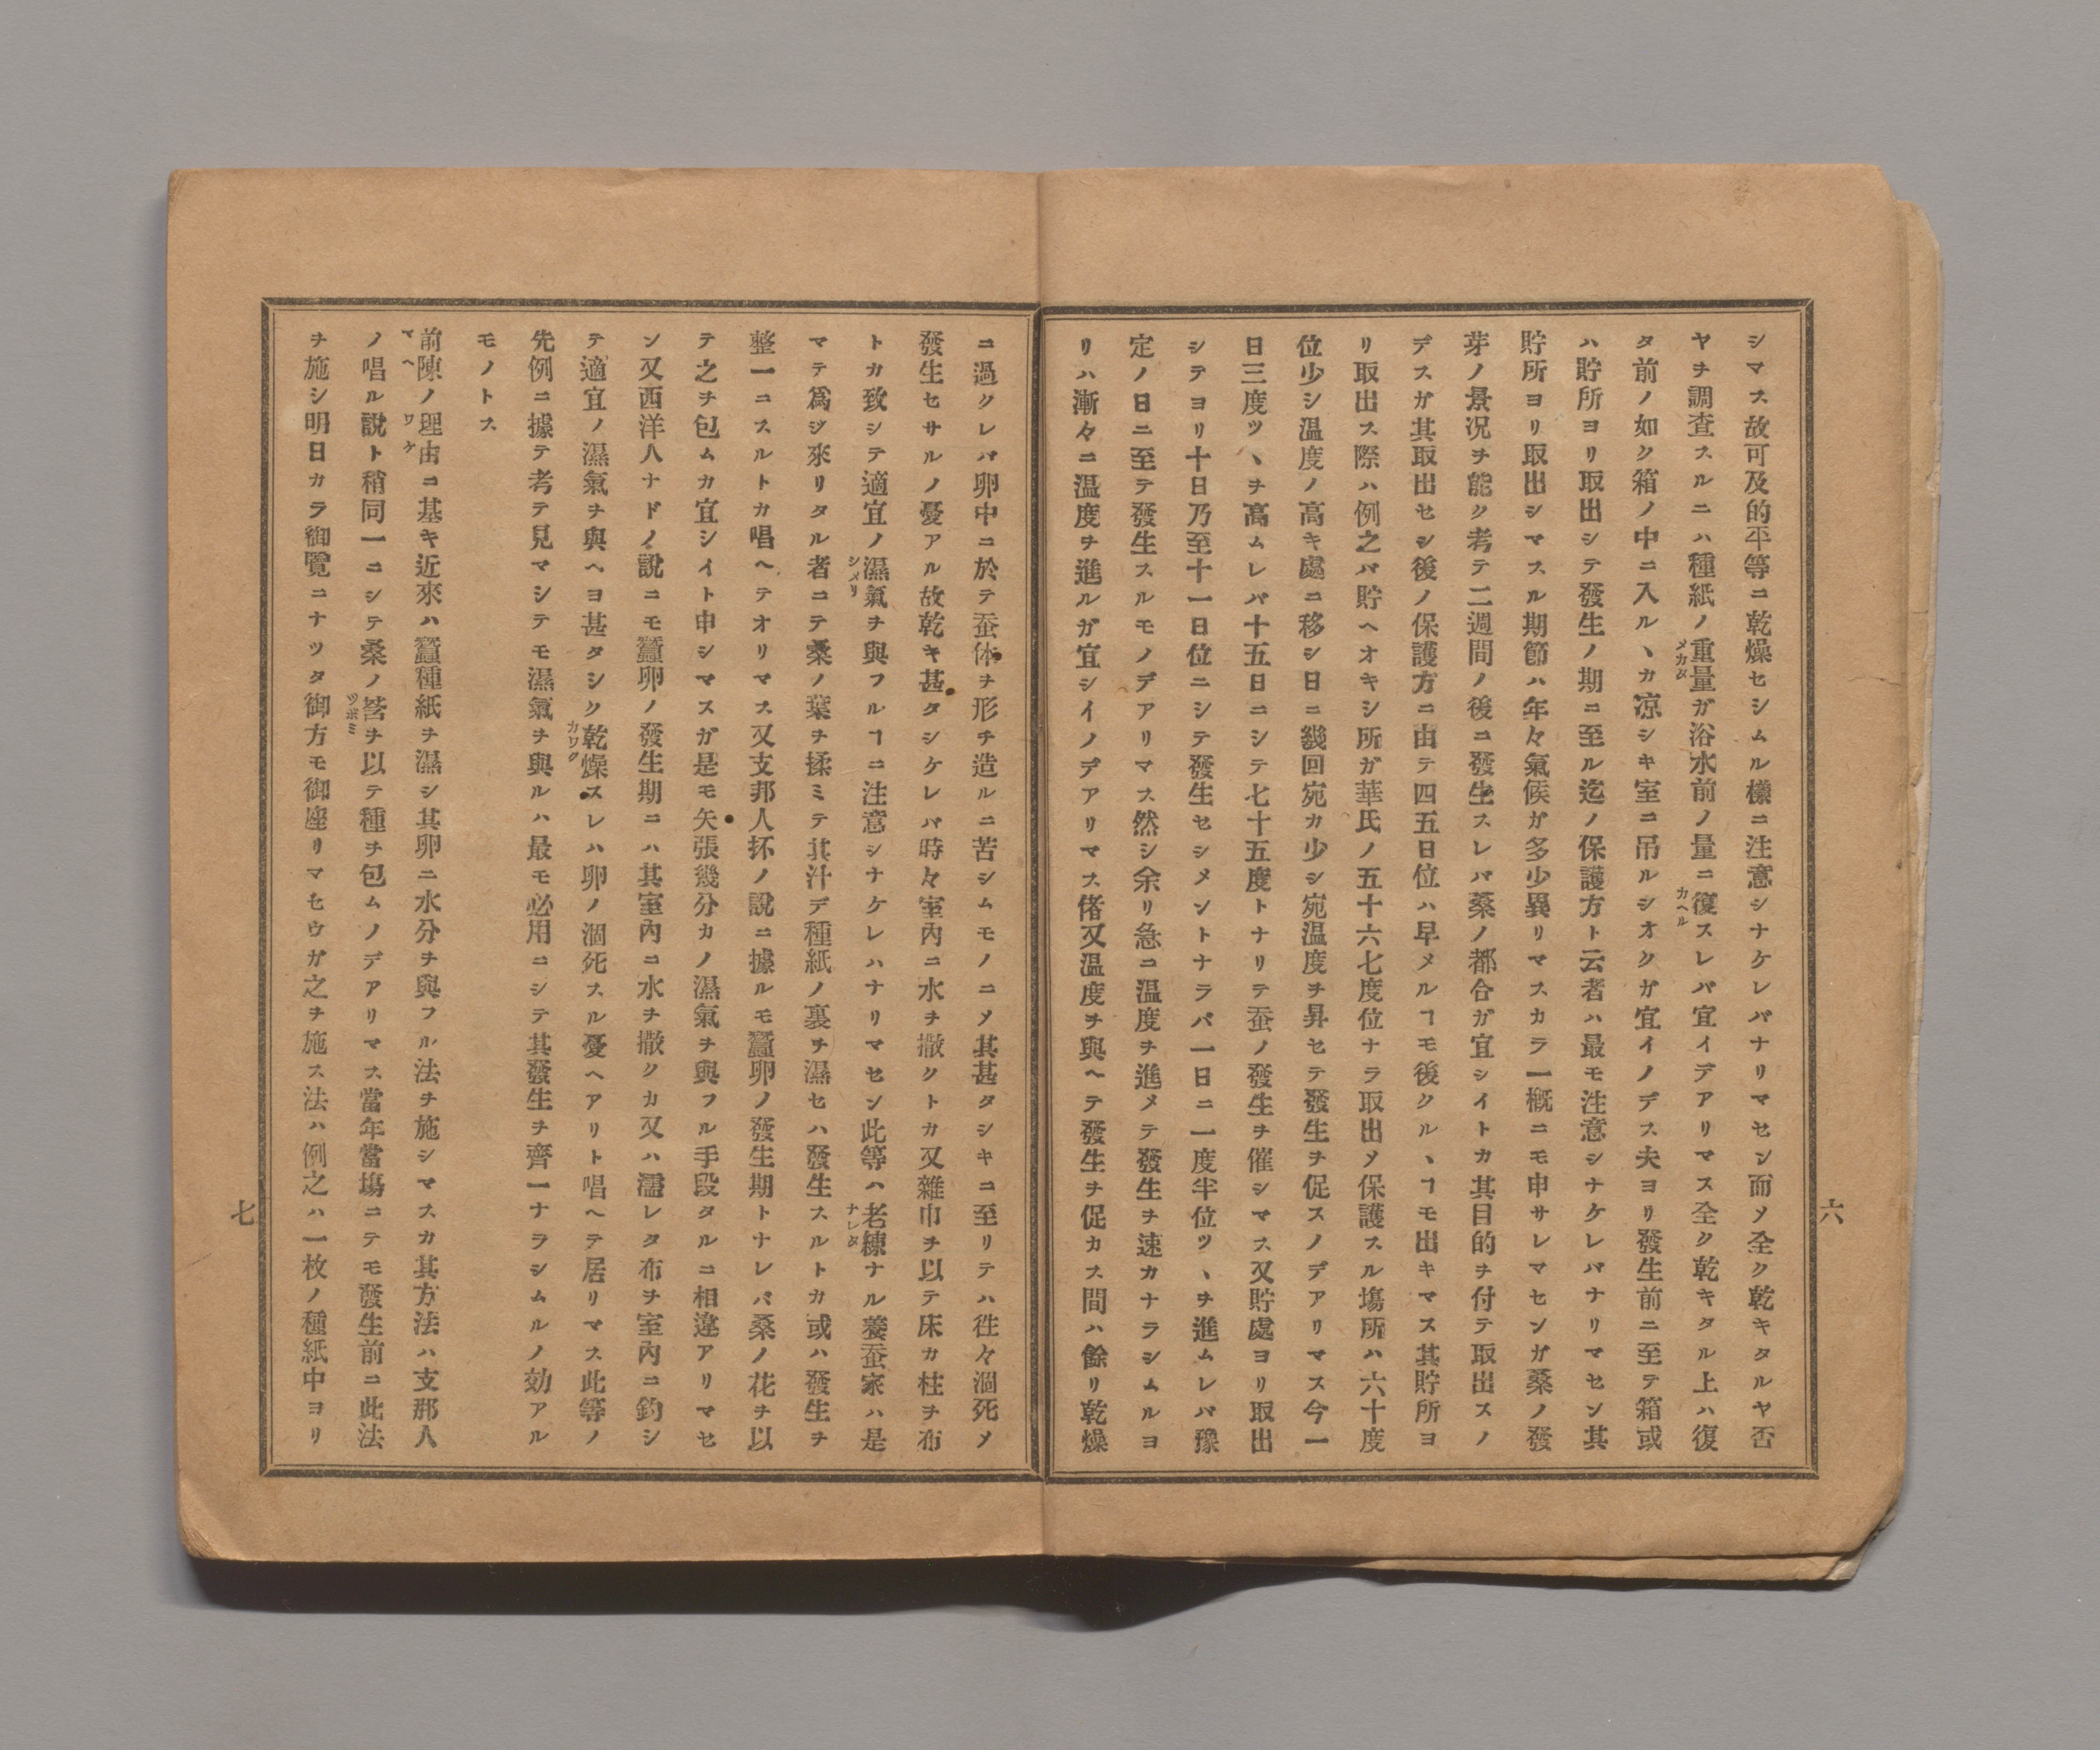 シマス故可及的平等ニ乾燥セシムル樣ニ注意シナケレバナリマセン而メ全ク乾キタルヤ否
ヤヲ調査スルニハ種紙ノ重量ガ浴水前ノ量ニ復スレバ宜イデアリマス全ク乾キタル上ハ復
メカタ
カヘル
タ前ノ如ク箱ノ中ニ入ルヽカ凉シキ室ニ吊ルシオクガ宜イノデス夫ヨリ發生前ニ至テ箱或
ハ貯所ヨリ取出シテ發生ノ期ニ至ル迄ノ保護方ト云者ハ最モ注意シナケレバナリマセン其
貯所ヨリ取出シマスル期節ハ年々氣候ガ多少異リマスカラ一概ニモ申サレマセンガ桑ノ發
芽ノ景况ヲ能ク考テ二週間ノ後ニ發生スレバ桑ノ都合ガ宜シイトカ其目的ヲ付テ取出スノ
デスガ其取出セシ後ノ保護方ニ由テ四五日位ハ早メルヿモ後クルヽヿモ出キマス其貯所ヨ
リ取出ス際ハ例之バ貯ヘオキシ所ガ華氏ノ五十六七度位ナラ取出メ保護スル塲所ハ六十度
位少シ温度ノ高キ處ニ移シ日ニ幾回宛カ少シ宛温度ヲ昇セテ發生ヲ促スノデアリマス今一
日三度ツヽヲ高ムレバ十五日ニシテ七十五度トナリテ蚕ノ發生ヲ催シマス又貯處ヨリ取出
シテヨリ十日乃至十一日位ニシテ發生セシメントナラバ一日ニ一度半位ツヽヲ進ムレバ豫
定ノ日ニ至テ發生スルモノデアリマス然シ余リ急ニ温度ヲ進メテ發生ヲ速カナラシムルヨ
リハ漸々ニ温度ヲ進ルガ宜シイノデアリマス偖又温度ヲ與ヘテ發生ヲ促カス間ハ餘リ乾燥
六
ニ過クレバ卵中ニ於テ蚕体ヲ形チ造ルニ苦シムモノニメ其甚タシキニ至リテハ徃々涸死メ
發生セサルノ憂アル故乾キ甚タシケレバ時々室內ニ水ヲ撒クトカ又雜巾ヲ以テ床カ柱ヲ布
トカ致シテ適宜ノ濕氣ヲ與フルヿニ注意シナケレハナリマセン此等ハ老練ナル養蚕家ハ是
シメリ
ナレタ
マテ爲シ來リタル者ニテ桑ノ葉ヲ揉ミテ其汁デ種紙ノ裏ヲ濕セハ發生スルトカ或ハ發生ヲ
整一ニスルトカ唱ヘテオリマス又支邦人抔ノ說ニ據ルモ蠶卵ノ發生期トナレバ桑ノ花ヲ以
テ之ヲ包ムカ宜シイト申シマスガ是モ矢張幾分カノ濕氣ヲ與フル手段タルニ相違アリマセ
ン又西洋人ナドノ說ニモ蠶卵ノ發生期ニハ其室內ニ水ヲ撒クカ又ハ濡レタ布ヲ室內ニ釣シ
テ適宜ノ濕氣ヲ與ヘヨ甚タシク乾燥スレハ卵ノ涸死スル憂ヘアリト唱ヘテ居リマス此等ノ
カワク
先例ニ據テ考テ見マシテモ濕氣ヲ與ルハ最モ必用ニシテ其發生ヲ齊一ナラシムルノ効アル
モノトス
前陳ノ理由ニ基キ近來ハ蠶種紙ヲ濕シ其卵ニ水分ヲ與フル法ヲ施シマスカ其方法ハ支那人
マヘ
ワケ
ノ唱ル說ト稍同一ニシテ桑ノ莟ヲ以テ種ヲ包ムノデアリマス當年當塲ニテモ發生前ニ此法
ツボミ
ヲ施シ明日カラ御覽ニナツタ御方モ御座リマセウガ之ヲ施ス法ハ例之ハ一枚ノ種紙中ヨリ
七